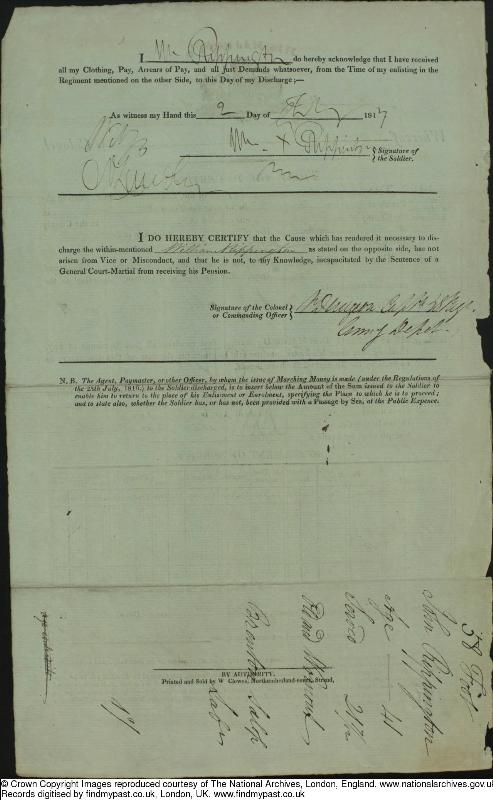 I Wm Rippington do hereby acknowledge that I have received
all my Clothing, Pay, Arrears of Pay, and all just Demands whatsoever, from the Time of my enlisting in the
Regiment mentioned on the other Side, to this Day of my Discharge:—
As witness my Hand this 2 Day of 1817
Wm X Rippington
Signature of
the Soldier.
I DO HEREBY CERTIFY that the Cause which has rendered it necessary to dis-
charge the within-mentioned William Rippington as stated on the opposite side, has not
arisen from Vice or Misconduct, and that he is not, to my Knowledge, incapacitated by the Sentence of a
General Court-Martial from receiving his Pension.
Signature of the Colonel
or Commanding Officer
Comg Depot
N.B. The Agent, Paymaster, or other Officer, by whom the issue of Marching Money is made (under the Regulations of
the 25th July, 1816,) to the Soldier discharged, is to insert below the Amount of the Sum issued to the Soldier to
enable him to return to the place of his Enlisment or Enrolment, specifying the Place to which he is to proceed;
and to state also, whether the Soldier has, or has not, been provided with a Passage by Sea, at the Public Expence.
58 Foot
Rippington
Age 41
BY AUTHORITY.
Printed and Sold by W Clowes, Northumberland-court, Strand,
© Crown Copyright Images reproduced courtesy of The National Archives, London, England. www.nationalarchives.gov.uk
Records digitised by findmypast.co.uk, London, UK. www.findmypast.co.uk